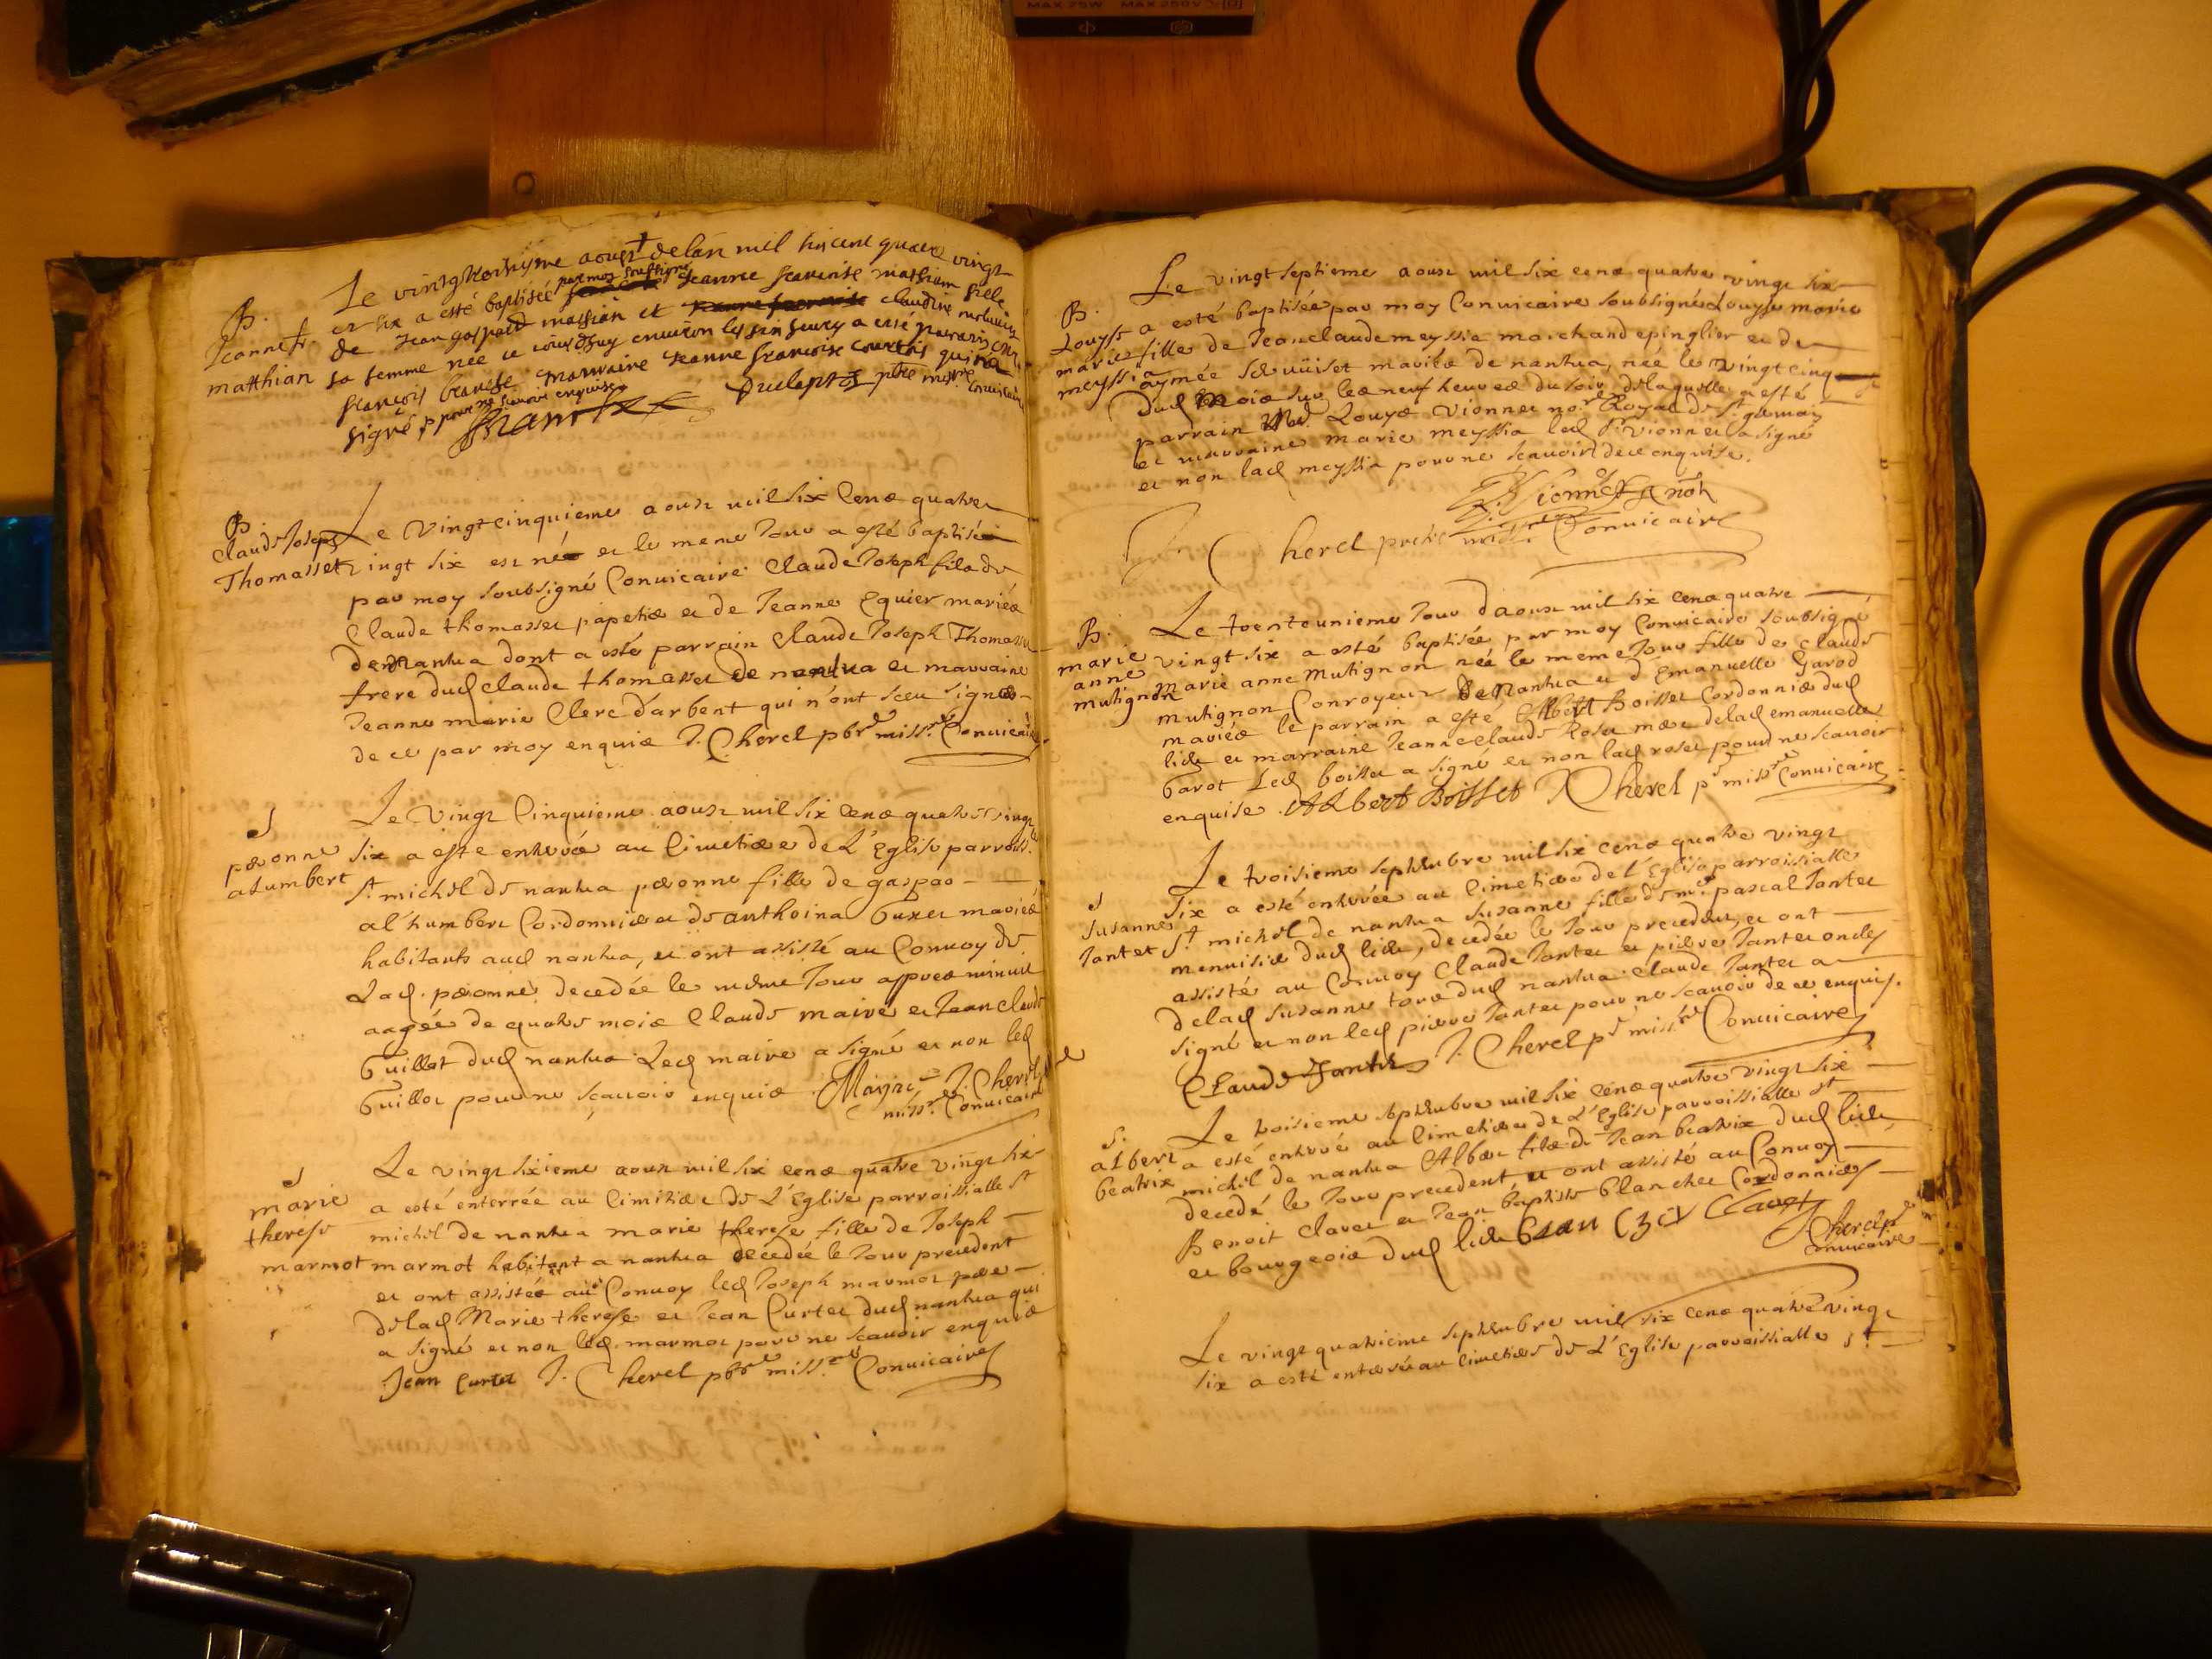 MAX 75W MAX 250V
B.
Jeanne fr.
matthian
Le vingt troisiyme aoust de lan mil six cent quatre vingt
et six a esté baptisée par moy soussigné Jeanne francoise mathian fille
de Jean gaspard mathian et claudine
sa femme née ce jourdhuy environ les sin a esté parrain
francois marraine Jeanne francoise courtois qui na
signé pour ne scavoir enquise
pbre missre convicaire
B
Claude Joseph
Thomasset
Le Vingt cinquieme aoust mil six Cens quatre
vingt six est né et le meme Jour a esté baptisé
par moy soubsigné Convicaire Claude Joseph fils de
Claude thomasset papetier et de Jeanne Equier mariés
de Nantua dont a esté parrain Claude Joseph Thomasset
frere dud Claude thomasset de nantua et marraine
Jeanne marie Clerc d'arbent qui n'ont sceu signer
de ce par moy enquis J. Cherel pbre missre Convicaire
S
peronne
alumbert
Le Vingt Cinquieme aoust mil six Cens quatre vingt
six a esté enterrée au Cimetiere de L'Eglise parroisle
st michel de nantua peronne fille de gaspar
al'humbert Cordonnier et de anthoina Guxer mariés
habitants aud nantua, et ont assisté au Convoy de
Lad. peronne decedée le meme Jour appres minuit
aagée de quatre mois Claude maire et Jean claude
Guillot dud nantua Led maire a signé et non led
Guillot pour ne scavoir enquis Mayre J. Cherel pbre
missre Convicaire
S
marie
therese
marmot
Le vingt sixieme aoust mil six cens quatre vingt six
a esté enterrée au Cimitiere de L'Eglise parroissialle st
michel de nantua marie therese fille de Joseph
marmot habitant a nantua decedée le Jour precedent
et ont assistée au Convoy led Joseph marmot pere
de lad Marie therese et Jean Curtet dud nantua qui
a signé et non led marmot pour ne scavoir enquis
Jean Curtet J. Cherel pbre missre Convicaire
B.
Louyse
marie
meyssia
Le vingt septieme aoust mil six cens quatre vingt six
a esté baptisée par moy Convicaire soubsigné Louyse marie
fille de Jean claude meyssia marchand epinglier et de
aymée mariés de nantua, née le vingt cinq
dud mois sur les neuf heures du soir de laquelle a esté
parrain Mre Louys Vionnet nore Royal de St germain
et marraine marie meyssia led Sr Vionnet a signé
et non lad meyssia pour ne scavoir de ce enquise.
Vionnet not
J. Cherel pretre missre Convicaire
B.
marie
anne
mutignon
Le trente unieme Jour d'aoust mil six cens quatre
vingt six a esté baptisée par moy Convicaire soubsigné
marie anne Mutignon née le meme Jour fille de Claude
mutignon Conroyeur de Nantua et d'Emanuelle Garod
mariés le parrain a esté Albert Boisset Cordonnier dud
lieu et marraine Jeanne claude Roset mere de lad emanuelle
Garot Led boisset a signé et non lad roset pour ne scavoir
enquise. Albert Boisset J. Cherel pr missre Convicaire
S
Susanne
Jantet
Le troisieme septembre mil six cens quatre vingt
six a esté enterrée au Cimetiere de L'Eglise parroissialle
St michel de nantua Susanne fille de me pascal Jantet
menuisier dud lieu, decedée le Jour precedent, et ont
assisté au Convoy Claude Jantet et pierre Jantet oncles
de lad Susanne tous dud nantua Claude Jantet a
signé et non led pierre Jantet pour ne scavoir de ce enquis.
Claude Jantet J. Cherel pr missre Convicaire
S.
albert
beatrix
Le troisieme septembre mil six cens quatre vingt six
a esté enterré au Cimetiere de L'Eglise parroissialle st
michel de nantua Albert fils de Jean beatrix dud lieu
decedé le Jour precedent, et ont assisté au Convoy
Benoit Clavet et Jean baptiste blanchet Cordonniers
et bourgeois dud lieu Clavet
J. Cherel pr
Convicaire
Le vingt quatrieme septembre mil six cens quatre vingt
six a esté enterré au cimetiere de L'Eglise parroissialle st